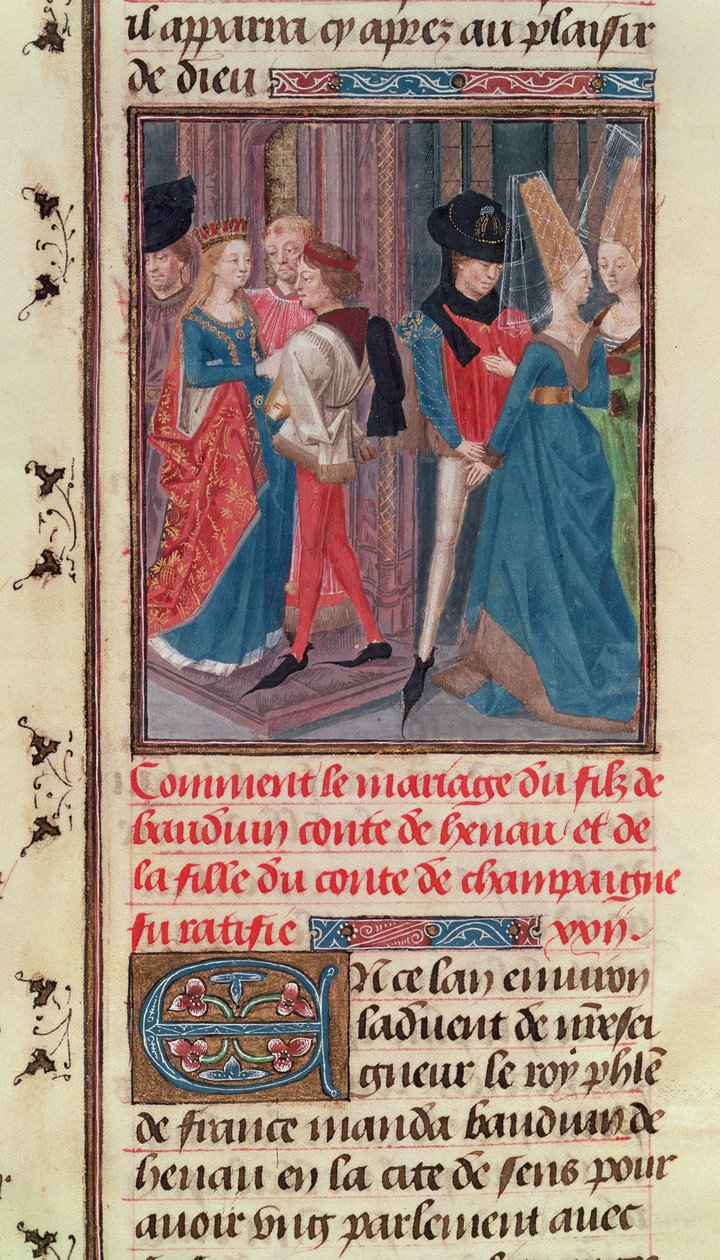 il apparra cy aprez au plaisir
de dieu
Comment le mariage du filz de
bauduin conte de henau et de
la fille du conte de champaigne
fu ratifie xvii.
En ce lan enuiron
laduent de nrẽ sei
gneur le roy phlẽ
de france manda bauduin de
henau en la cite de sens pour
auoir vng parlement auec